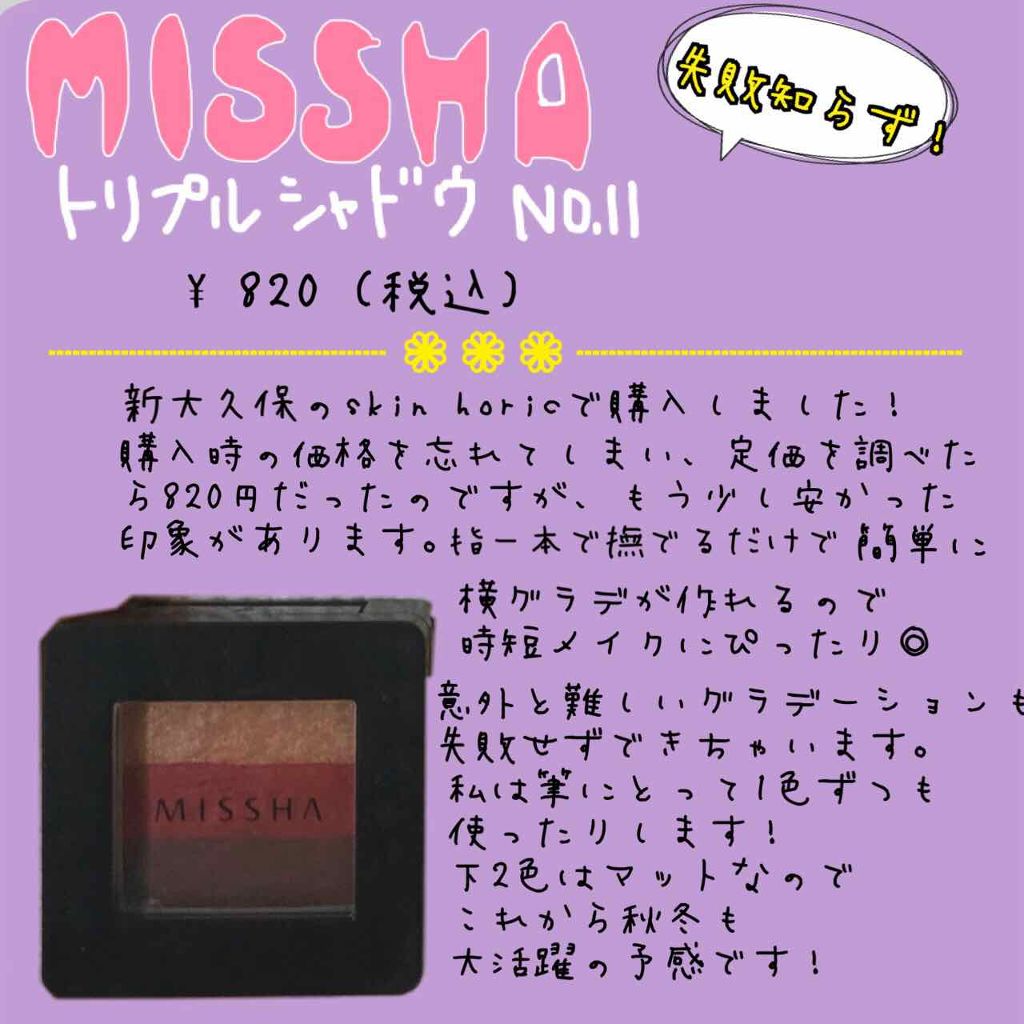 MISSHA
失敗知らず!
トリプルシャドウ NO.11
¥ 820 (税込)
新大久保のskin horicで購入しました!
購入時の価格を忘れてしまい、定価を調べた
ら820円だったのですが、もう少し安かった
印象があります。指一本で撫でるだけで簡単に
横グラデが作れるので
時短メイクにぴったり◎
意外と難しいグラデーションも
失敗せずできちゃいます。
私は筆にとって1色ずつも
使ったりします!
下2色はマットなので
これから秋冬も
大活躍の予感です!
MISSHA